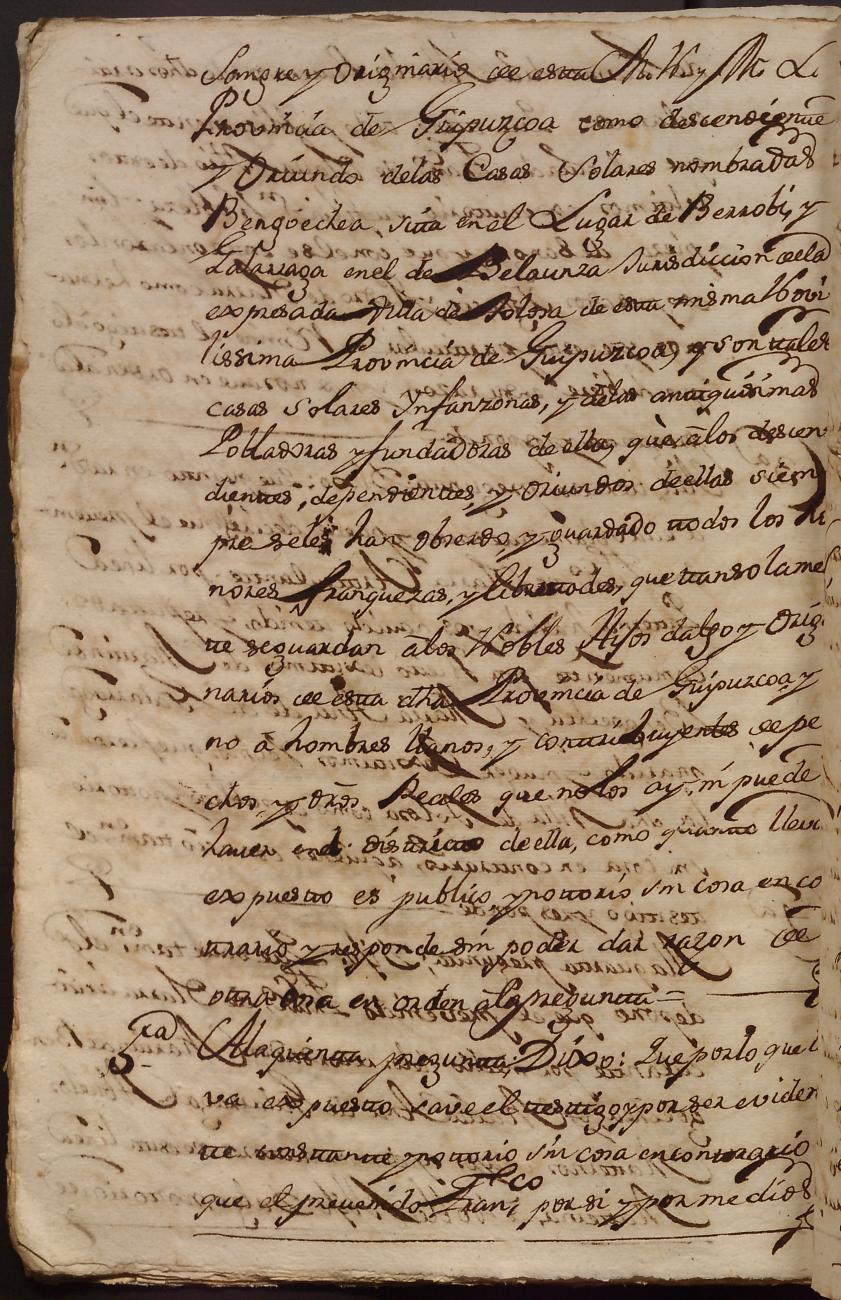 Sangre y Originario de esta M. N. y M. L.
Provincia de Guipuzcoa como descendiente
y Oriundo delas Casas Solares nombradas
Bengoechea sita en el Lugar de Berrobi, y
Galarraga en el de Belaunza Jurisdiccion dela
expresada Villa de Tolosa de esta misma Novi
lissima Provincia de Guipuzcoa, y son tales
casas solares Ynfanzonas, y delas antiquisimas
Pobladoras y fundadoras de ella, que âlos descen
dientes, dependientes, y oriundos de ellas siem
pre seles han obserdo, y guardado todos los ho
nores franquezas, y libertades, que tan solame
te se guardan âlos Nobles Hijos dalgo y Orig
narios de esta dha Provincia de Guipuzcoa y
no â hombres llanos, y contribuyentes de pe
chos, y dros Reales que no los ay, ni puede
haver en el districto de ella, como quanto lleva
expuesto es publico y notorio sin cosa en co
ntrario y responde sin poder dar razon de
otra cosa en orden ala pregunta =
5ta Ala quinta pregunta; Dixo: Que por lo que l
va expuesto save el testigo y por ser eviden
te constante y notorio sin cosa en contrario
que el prevenido Franco por si y por medios